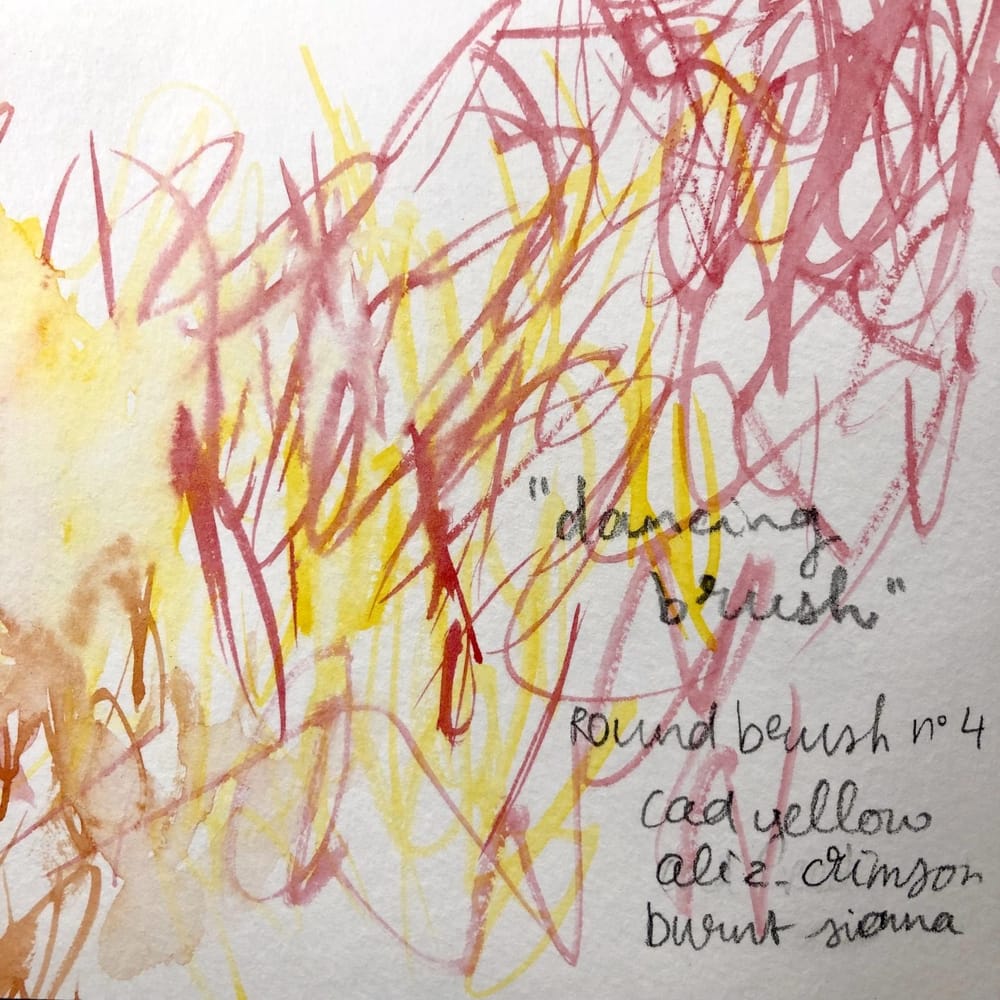 "dancing
brush"
Round brush n° 4
cad yellow
aliz. crimson
burnt sienna